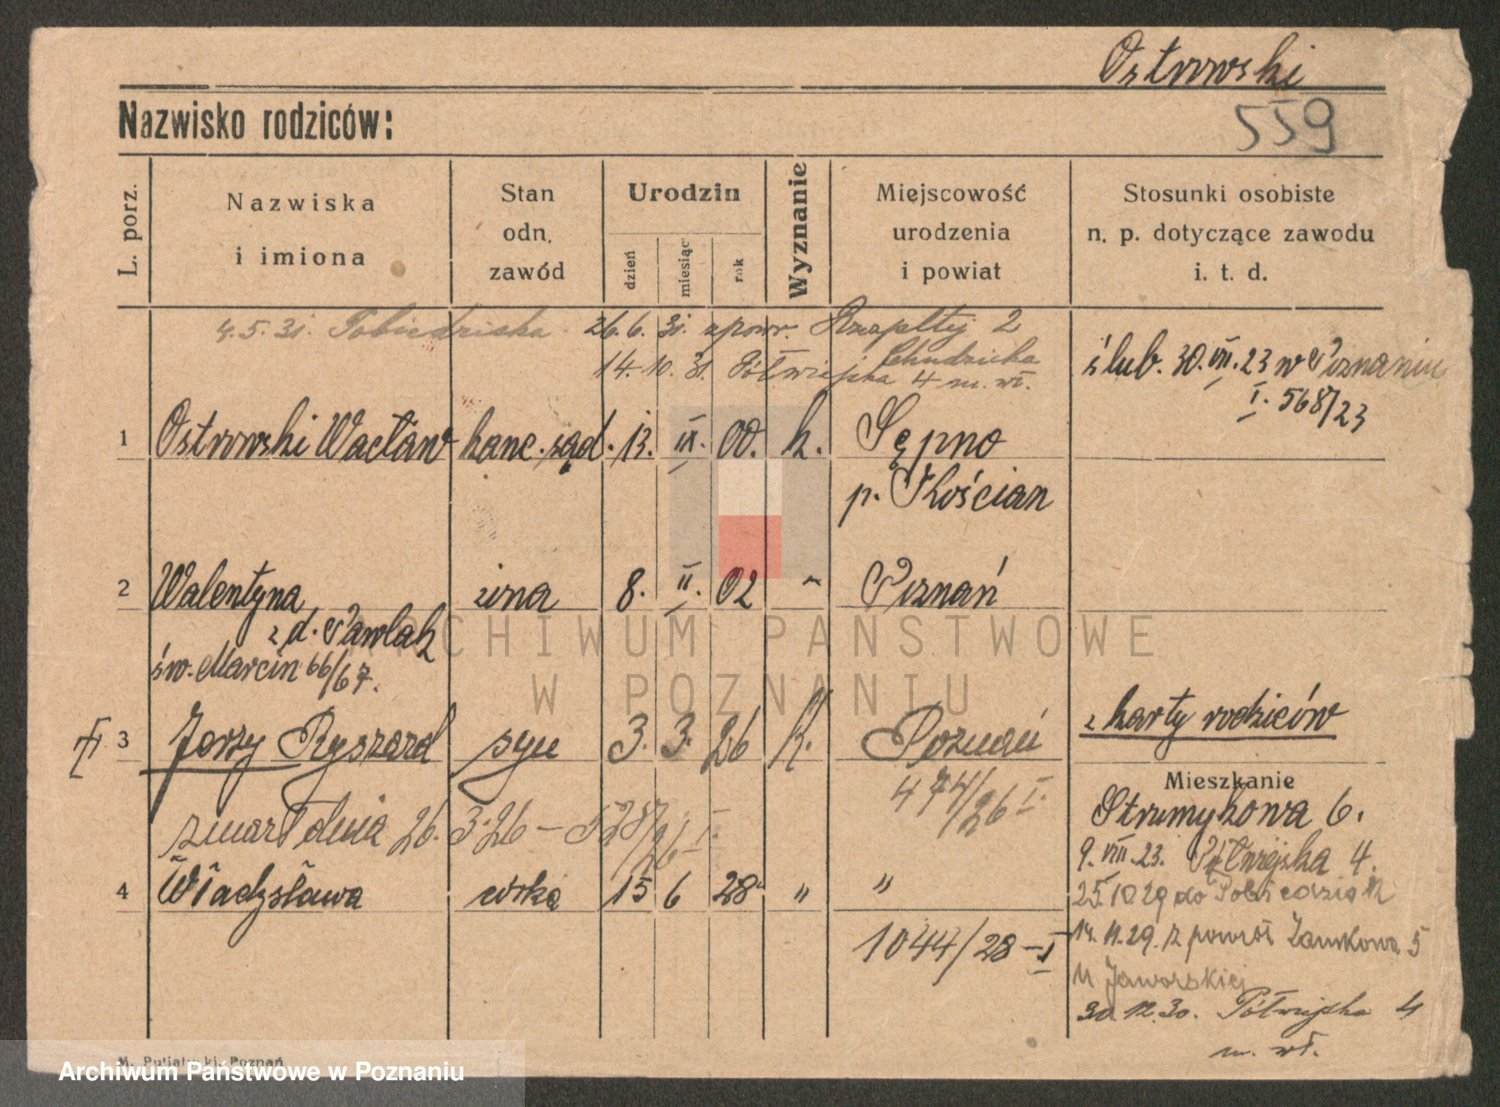 Ostrowski
Nazwisko rodziców:
559
L. porz.
Nazwiska
i imiona
Stan
odn.
zawód
Urodzin
dzień
miesiąc
rok
Wyznanie
Miejscowość
urodzenia
i powiat
Stosunki osobiste
n. p. dotyczące zawodu
i. t. d.
4.5.31. Pobiedziska 26.6.31. zpowr. 2
14.10.31. Półwiejska 4 m. wł.
ślub. 30.VIII.23 w Poznaniu
I. 568/23
1 Ostrowski Wacław kanc. sąd. 13. IX. 00. k. Sępno
p. Kościan
2 Walentyna żona 8. II. 02 " Poznań
z d. Pawlak
św. Marcin 66/67.
ARCHIWUM PAŃSTWOWE
W POZNANIU
z karty rodziców
3 Jerzy Ryszard syn 3. 3. 26 K. Poznań
474/26 I.
zmarł dnia 26.3.26 – 528/26 I.
Mieszkanie
Strumykowa 6.
9.VIII.23. Półwiejska 4.
4 Władysława córka 15 6 28 " "
1044/28 – I
25.10.29 do Pobiedzisk
14.11.29. z powrót Zamkowa 5
u Jaworskiej
30.12.30. Półwiejska 4
m. wł.
M. Putiatycki, Poznań
Archiwum Państwowe w Poznaniu